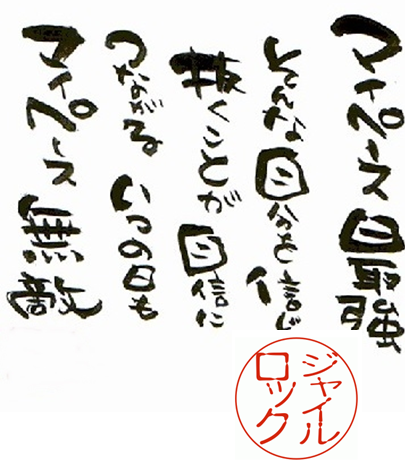 マイペース最強
そんな自分を信じ
抜くことが自信に
つながる いつの日も
マイペース無敵
ジャイル
ロック